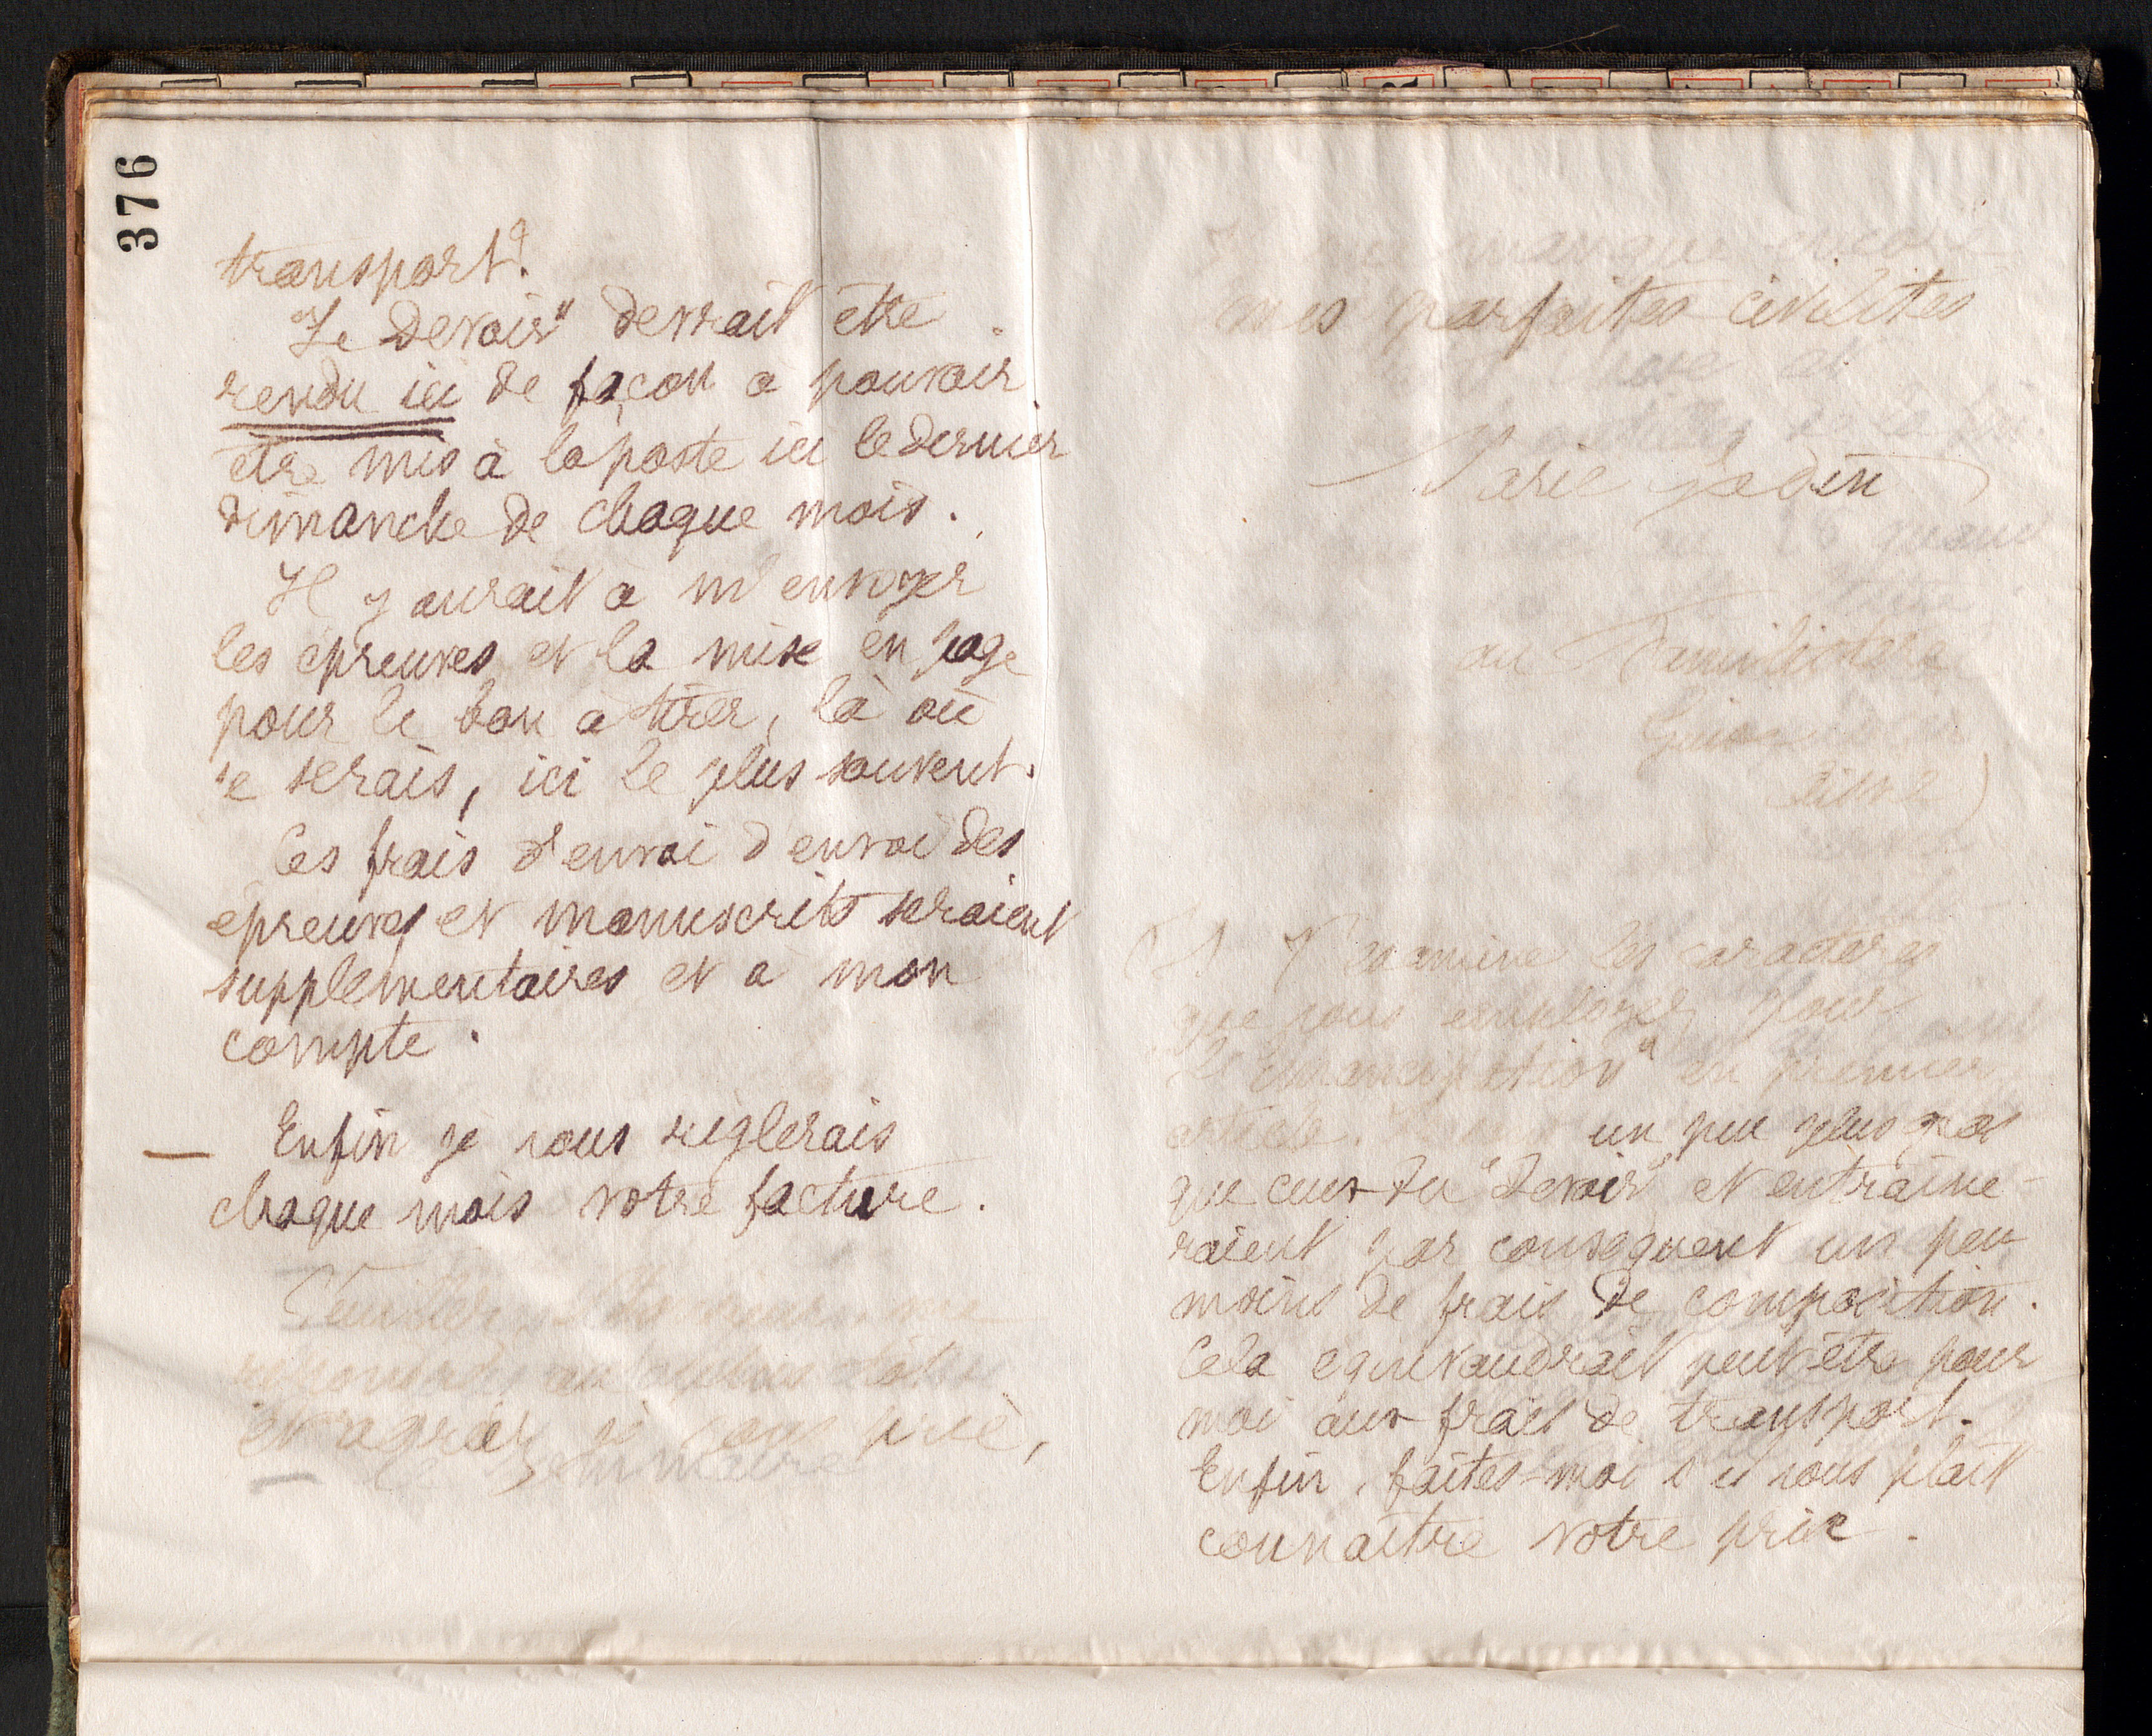 376
transport?
"Le Devoir" devrait être
rendu ici de façon à pouvoir
être mis à la poste ici le dernier
dimanche de chaque mois.
Il y aurait à m'envoyer
les épreuves et la mise en page
pour le bon à tirer, là où
je serais, ici le plus souvent.
Ces frais d'envoi d'envoi des
épreuves et manuscrits seraient
supplémentaires et à mon
compte.
— Enfin je vous réglerais
chaque mois votre facture.
Veuillez, Monsieur, me
répondre au plus tôt
et agréer, je vous prie,
mes parfaites civilités
Marie Moret Godin
au Familistère
Guise
Aisne
J'examine les caractères
que vous employez pour
"l'Emancipation" en premier
article. un peu plus gros
que ceux du "Devoir" et entraîne-
raient par conséquent un peu
moins de frais de composition.
Cela équivaudrait peut être pour
moi aux frais de transport.
Enfin, faites-moi s'il vous plaît
connaître votre prix.